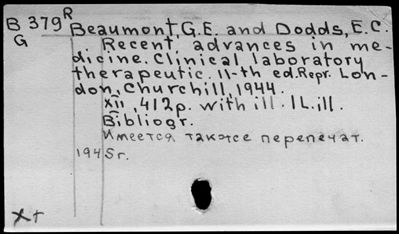 B 379 R Beaumont, G.E. and Dodds, E.C.
G Recent advances in me-
dicine. Clinical laboratory
therapeutic. 11-th ed. Repr. Lon-
don, Churchill, 1944.
XII, 412p. with ill. 1 L. ill.
Bibliogr.
Имеется также перепечат.
1945г.
X+